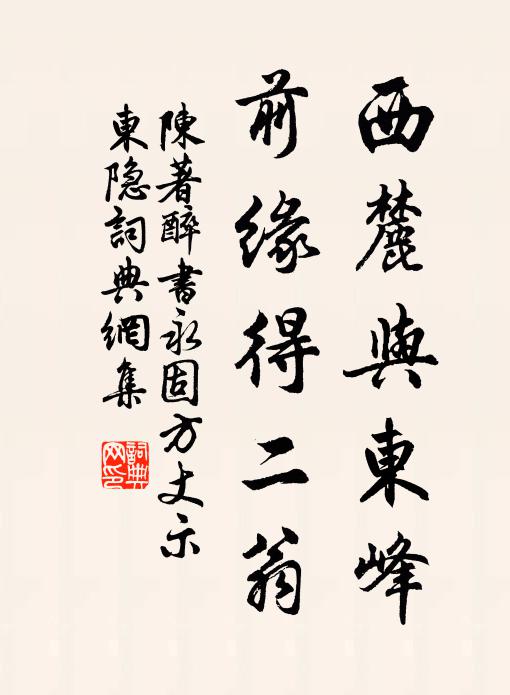 西麓與東峰
前緣得二翁
陳著醉書永固方丈示
東隐詞典網集
詞典網印